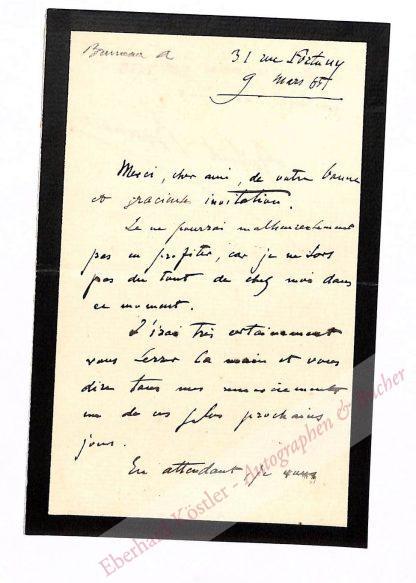 Bruneau A
31 rue Fortuny
9 mars 85
Merci, cher ami, de votre bonne
et gracieuse invitation.
Je ne pourrai malheureusement
pas en profiter, car je ne sors
pas du tout de chez moi dans
ce moment.
J'irai très certainement
vous serrer la main et vous
dire tous mes remerciements
un de ces plus prochains
jours.
En attendant je vous
Eberhard Köstler - Autographen & Bücher